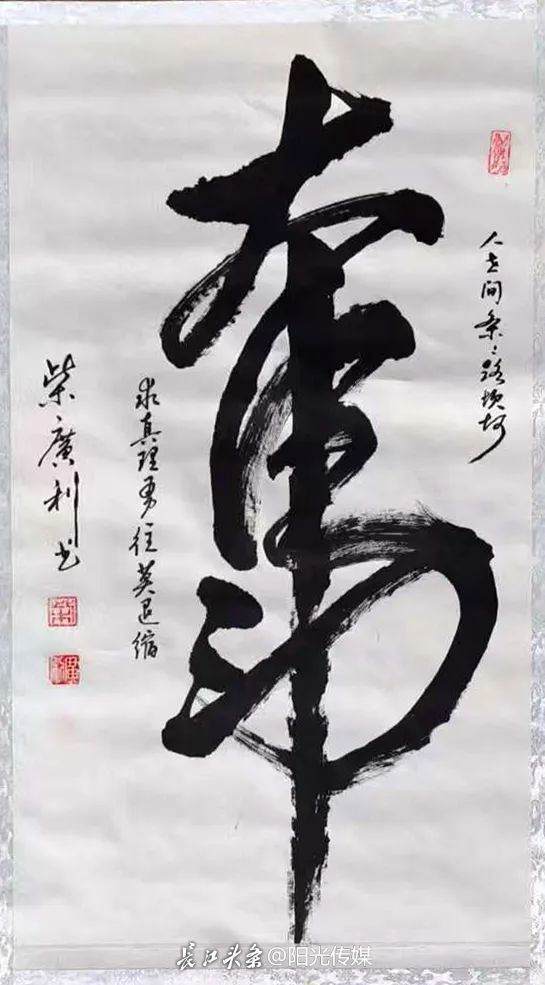 人世间条々路坎坷
奋斗
求真理勇往莫退缩
柴廣利书
长江头条@阳光传媒